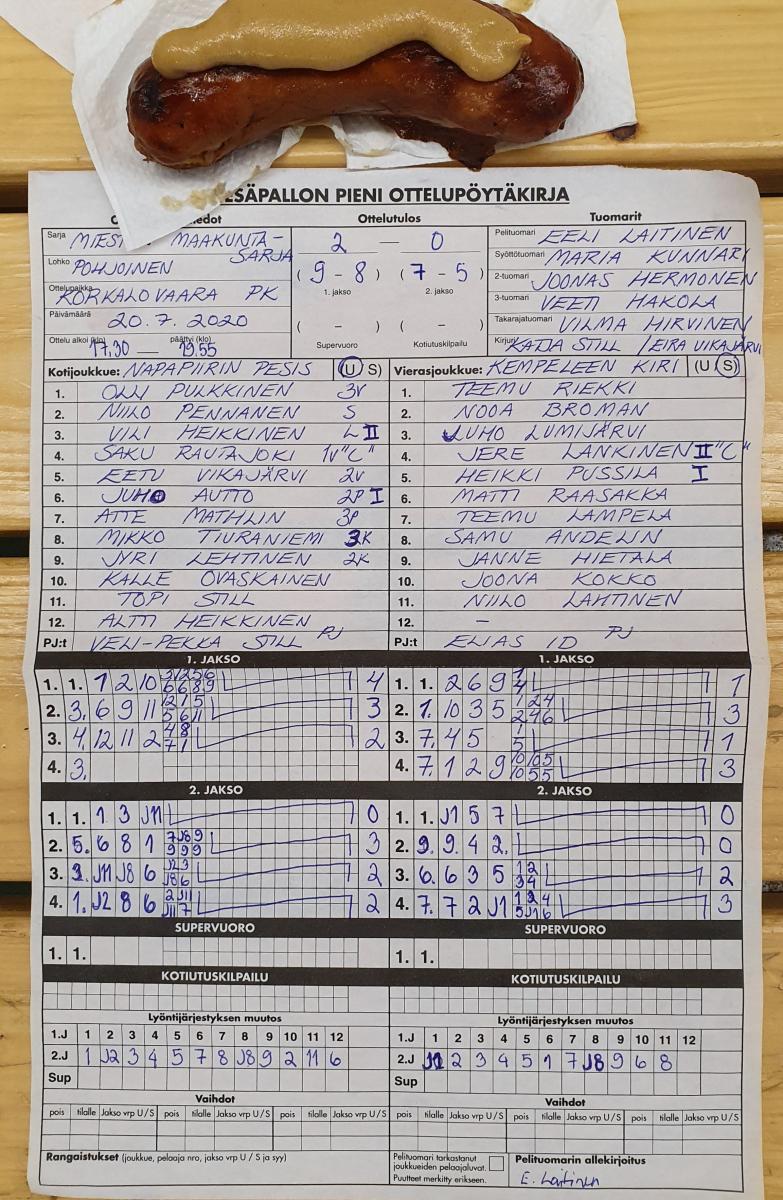 ESÄPALLON PIENI OTTELUPÖYTÄKIRJA
Ottelutulos
Tuomarit
Sarja MIEST MAAKUNTA-
SARJA
Lohko POHJOINEN
Ottelupaikka KORKALOVAARA PK
Päivämäärä 20.7.2020
Ottelu alkoi (klo) päättyi (klo)
17.30 — 19.55
2 — 0
( 9 - 8 ) ( 7 - 5 )
1. jakso 2. jakso
( - ) ( - )
Supervuoro Kotiutuskilpailu
Pelituomari EELI LAITINEN
Syöttötuomari MARIA KUNNARI
2-tuomari JOONAS HERMONEN
3-tuomari VEETI HAKOLA
Takarajatuomari VILMA HIRVINEN
Kirjuri KATJA STILL / EIRA VIKAJÄRVI
Kotijoukkue: NAPAPIIRIN PESIS (U S)
1. OLLI PULKKINEN 3V
2. NIILO PENNANEN S
3. VILI HEIKKINEN L II
4. SAKU RAUTAJOKI 1V "C"
5. EETU VIKAJÄRVI 2V
6. JUHO AUTTO 2P I
7. ATTE MATHLIN 3P
8. MIKKO TIURANIEMI 3K
9. JYRI LEHTINEN 2K
10. KALLE OVASKAINEN
11. TOPI STILL
12. ALTTI HEIKKINEN
PJ:t VELI-PEKKA STILL PJ
Vierasjoukkue: KEMPELEEN KIRI (U S)
1. TEEMU RIEKKI
2. NOOA BROMAN
3. JUHO LUMIJÄRVI
4. JERE LANKINEN II "C"
5. HEIKKI PUSSILA I
6. MATTI RAASAKKA
7. TEEMU LAMPELA
8. SAMU ANDELIN
9. JANNE HIETALA
10. JOONA KOKKO
11. NIILO LAHTINEN
12. –
PJ:t ELIAS ID PJ
1. JAKSO
1. 1. 1 2 10 4
2. 3. 6 9 11 3
3. 4. 12 11 2 2
4. 3.
1. JAKSO
1. 1. 2 6 9 1
2. 1. 10 3 5 3
3. 7. 4 5 1
4. 7. 1 2 9 3
2. JAKSO
1. 1. 1 3 J11 0
2. 5. 6 8 1 3
3. J11 J8 6 2
4. 1. J2 8 6 2
2. JAKSO
1. 1. J1 5 7 0
2. 9. 9 4 2. 0
3. 6. 6 3 5 2
4. 7. 7 2 J1 3
SUPERVUORO
1. 1.
SUPERVUORO
1. 1.
KOTIUTUSKILPAILU
KOTIUTUSKILPAILU
Lyöntijärjestyksen muutos
1.J 1 2 3 4 5 6 7 8 9 10 11 12
2.J 1 J2 3 4 5 7 8 J8 9 2 11 6
Sup
Lyöntijärjestyksen muutos
1.J 1 2 3 4 5 6 7 8 9 10 11 12
2.J J1 2 3 4 5 1 7 J8 9 6 8
Sup
Vaihdot
pois tilalle Jakso vrp U/S pois tilalle Jakso vrp U/S pois tilalle Jakso vrp U/S
Vaihdot
pois tilalle Jakso vrp U/S pois tilalle Jakso vrp U/S pois tilalle Jakso vrp U/S
Rangaistukset (joukkue, pelaaja nro, jakso vrp U / S ja syy)
Pelituomari tarkastanut
joukkueiden pelaajaluvat.
Puutteet merkitty erikseen.
Pelituomarin allekirjoitus
E. Laitinen